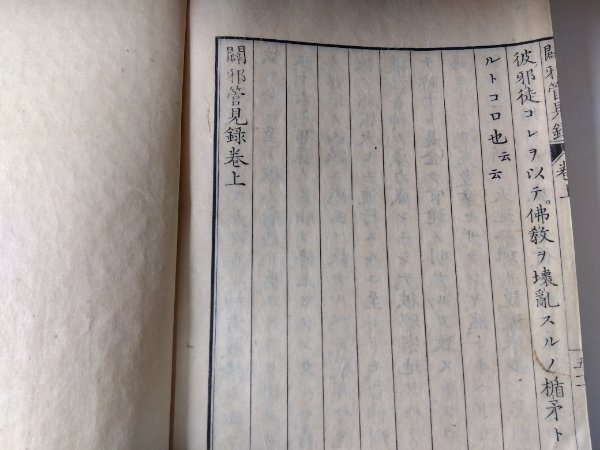 闢邪管見録 巻上
彼邪徒コレヲ以テ。佛敎ヲ壞亂スルノ楯矛ト
ルトコロ也云云
闢邪管見録巻上